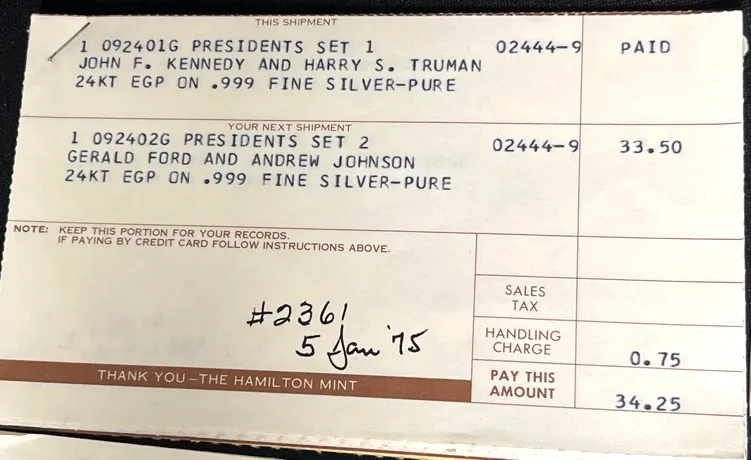 THIS SHIPMENT
1 092401G PRESIDENTS SET 1 02444-9 PAID
JOHN F. KENNEDY AND HARRY S. TRUMAN
24KT EGP ON .999 FINE SILVER-PURE
YOUR NEXT SHIPMENT
1 092402G PRESIDENTS SET 2 02444-9 33.50
GERALD FORD AND ANDREW JOHNSON
24KT EGP ON .999 FINE SILVER-PURE
NOTE: KEEP THIS PORTION FOR YOUR RECORDS.
IF PAYING BY CREDIT CARD FOLLOW INSTRUCTIONS ABOVE.
SALES
TAX
#2361
5 Jan '75
HANDLING
CHARGE 0.75
THANK YOU—THE HAMILTON MINT
PAY THIS
AMOUNT 34.25